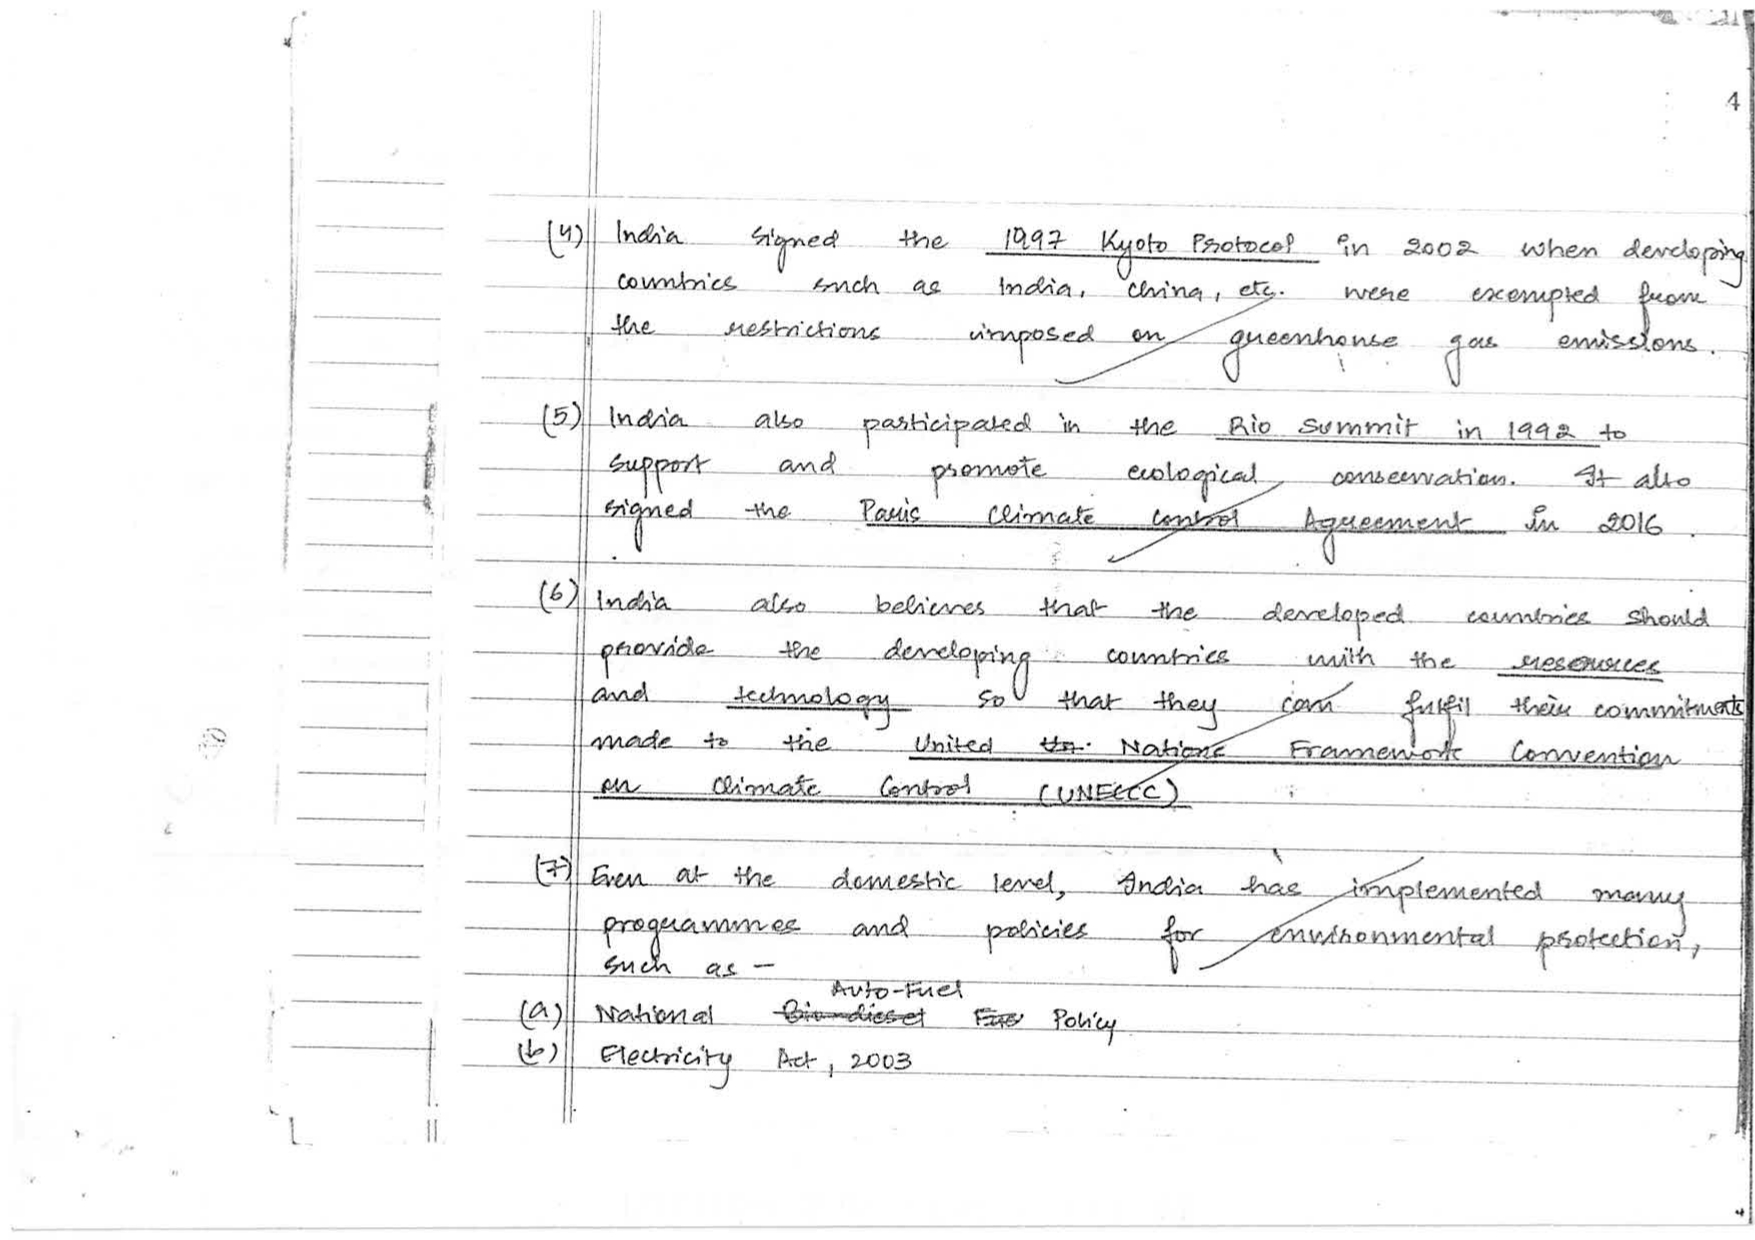 4
(4) India signed the 1997 Kyoto Protocol in 2002 when developing
countries such as India, China, etc. were exempted from
the restrictions imposed on greenhouse gas emissions.
(5) India also participated in the Rio Summit in 1992 to
support and promote ecological conservation. It also
signed the Paris Climate Control Agreement in 2016.
(6) India also believes that the developed countries should
provide the developing countries with the resources
and technology so that they can fulfil their commitments
made to the United Nations Framework Convention
on Climate Control (UNFCCC)
(7) Even at the domestic level, India has implemented many
programmes and policies for environmental protection,
such as –
Auto-Fuel
(a) National Bio-diesel Policy
(b) Electricity Act, 2003
4